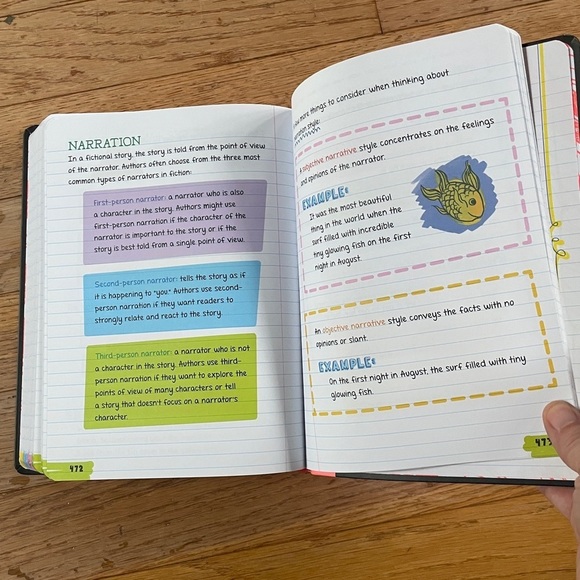 NARRATION
In a fictional story, the story is told from the point of view
of the narrator. Authors often choose from the three most
common types of narrators in fiction:
First-person narrator: a narrator who is also
a character in the story. Authors might use
first-person narration if the character of the
narrator is important to the story or if the
story is best told from a single point of view.
Second-person narrator: tells the story as if
it is happening to "you." Authors use second-
person narration if they want readers to
strongly relate and react to the story.
Third-person narrator: a narrator who is not
a character in the story. Authors use third-
person narration if they want to explore the
points of view of many characters or tell
a story that doesn't focus on a narrator's
character.
472
more things to consider when thinking about
style:
narrative style concentrates on the feelings
and opinions of the narrator.
EXAMPLE:
It was the most beautiful
thing in the world when the
surf filled with incredible
tiny glowing fish on the first
night in August.
An objective narrative style conveys the facts with no
opinions or slant.
EXAMPLE:
On the first night in August, the surf filled with tiny
glowing fish.
473